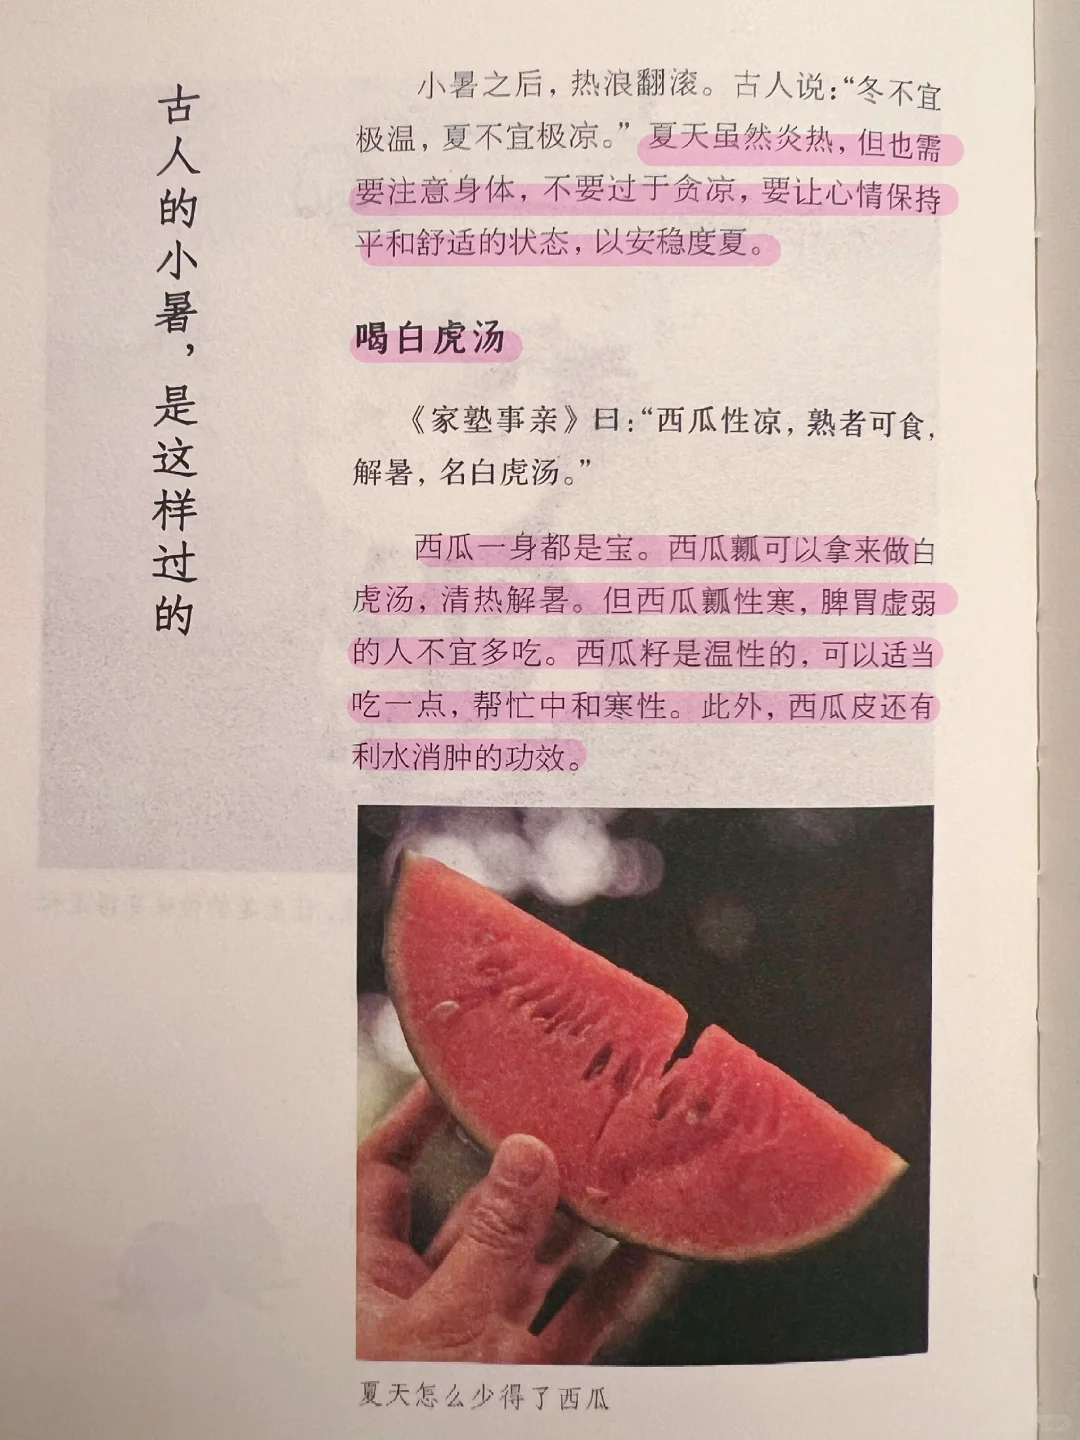 古人的小暑，是这样过的
小暑之后，热浪翻滚。古人说：“冬不宜
极温，夏不宜极凉。”夏天虽然炎热，但也需
要注意身体，不要过于贪凉，要让心情保持
平和舒适的状态，以安稳度夏。
喝白虎汤
《家塾事亲》曰：“西瓜性凉，熟者可食，
解暑，名白虎汤。”
西瓜一身都是宝。西瓜瓤可以拿来做白
虎汤，清热解暑。但西瓜瓤性寒，脾胃虚弱
的人不宜多吃。西瓜籽是温性的，可以适当
吃一点，帮忙中和寒性。此外，西瓜皮还有
利水消肿的功效。
夏天怎么少得了西瓜